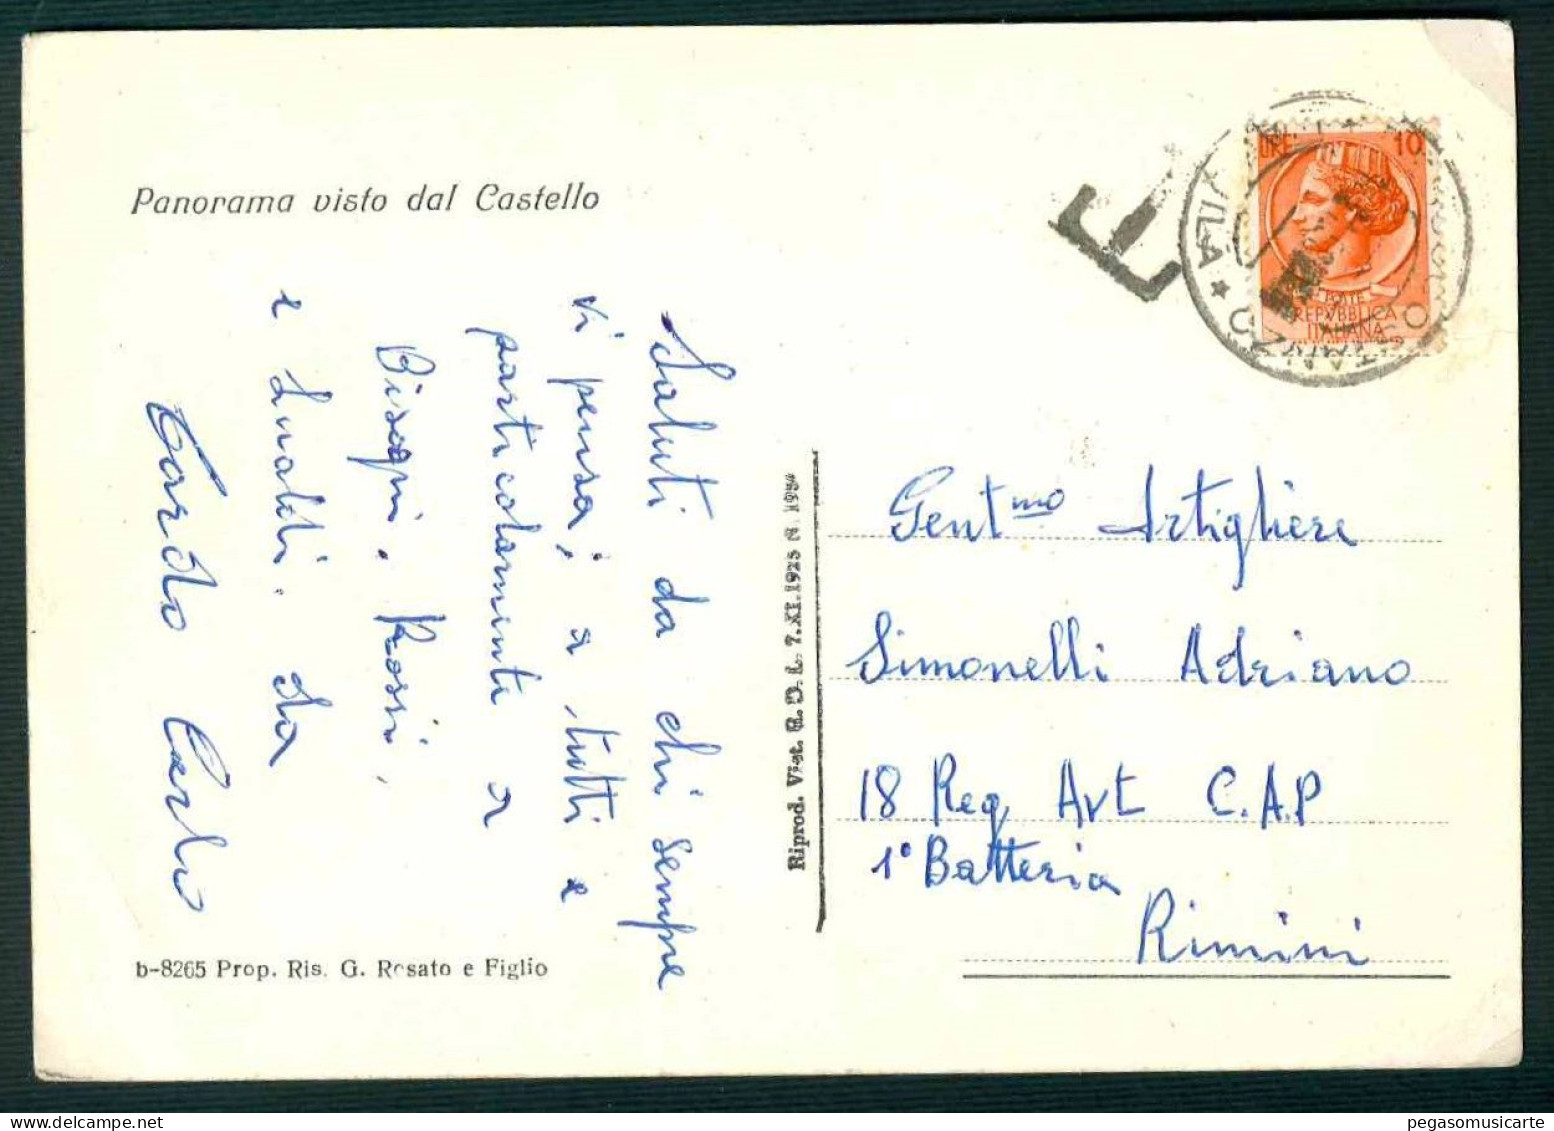 Panorama visto dal Castello
Saluti da chi sempre
vi pensa; a tutti e
particolarmente a
Bisogni. Rossi,
e Lualdi. da
Carlo
b-8265 Prop. Ris. G. Rosato e Figlio
Riprod. Viet. R. D. L. 7.XI.1925 N. 1954
E
LIRE 10
REPVBBLICA
ITALIANA
Gent mo Artigliere
Simonelli Adriano
18 Reg Art C.A.P
1° Batteria
Rimini
pegasomusicarte